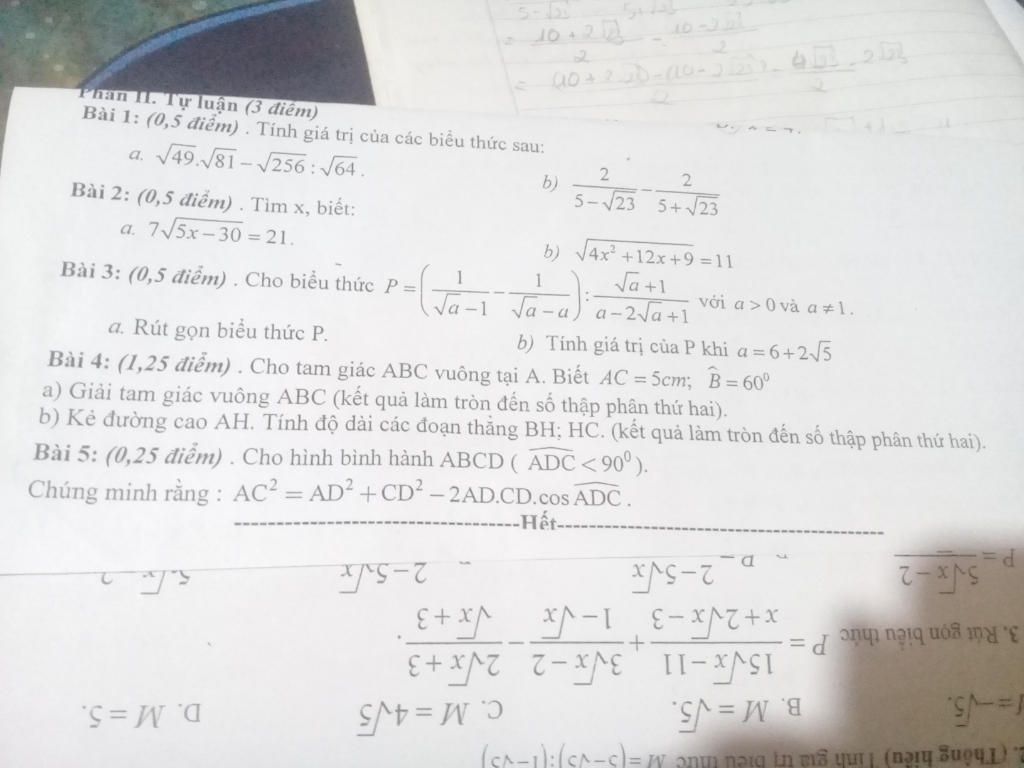 = 10 + 2√23 / 2 - 10 - 2√23 / 2
Phần II. Tự luận (3 điểm)
Bài 1: (0,5 điểm) . Tính giá trị của các biểu thức sau:
a. √49.√81 − √256 : √64 .
b) 2/(5−√23) − 2/(5+√23)
Bài 2: (0,5 điểm) . Tìm x, biết:
a. 7√(5x−30) = 21.
b) √(4x²+12x+9) = 11
Bài 3: (0,5 điểm) . Cho biểu thức P = (1/(√a−1) − 1/(√a−a)) : (√a+1)/(a−2√a+1) với a > 0 và a ≠ 1.
a. Rút gọn biểu thức P.
b) Tính giá trị của P khi a = 6+2√5
Bài 4: (1,25 điểm) . Cho tam giác ABC vuông tại A. Biết AC = 5cm; B̂ = 60⁰
a) Giải tam giác vuông ABC (kết quả làm tròn đến số thập phân thứ hai).
b) Kẻ đường cao AH. Tính độ dài các đoạn thẳng BH; HC. (kết quả làm tròn đến số thập phân thứ hai).
Bài 5: (0,25 điểm) . Cho hình bình hành ABCD ( ADC < 90⁰ ).
Chứng minh rằng : AC² = AD² + CD² − 2AD.CD.cos ADC .
-----Hết-----
(Thông hiểu) Tính giá trị biểu thức M=(5−√5):(1−√5)
−√5.
B. M = √5.
C. M = 4√5
D. M = 5.
3. Rút gọn biểu thức P = (15√x−11)/(x+2√x−3) + (3√x−2)/(1−√x) − (2√x+3)/(√x+3).
P = 5√x−2
2−5√x
2−5√x